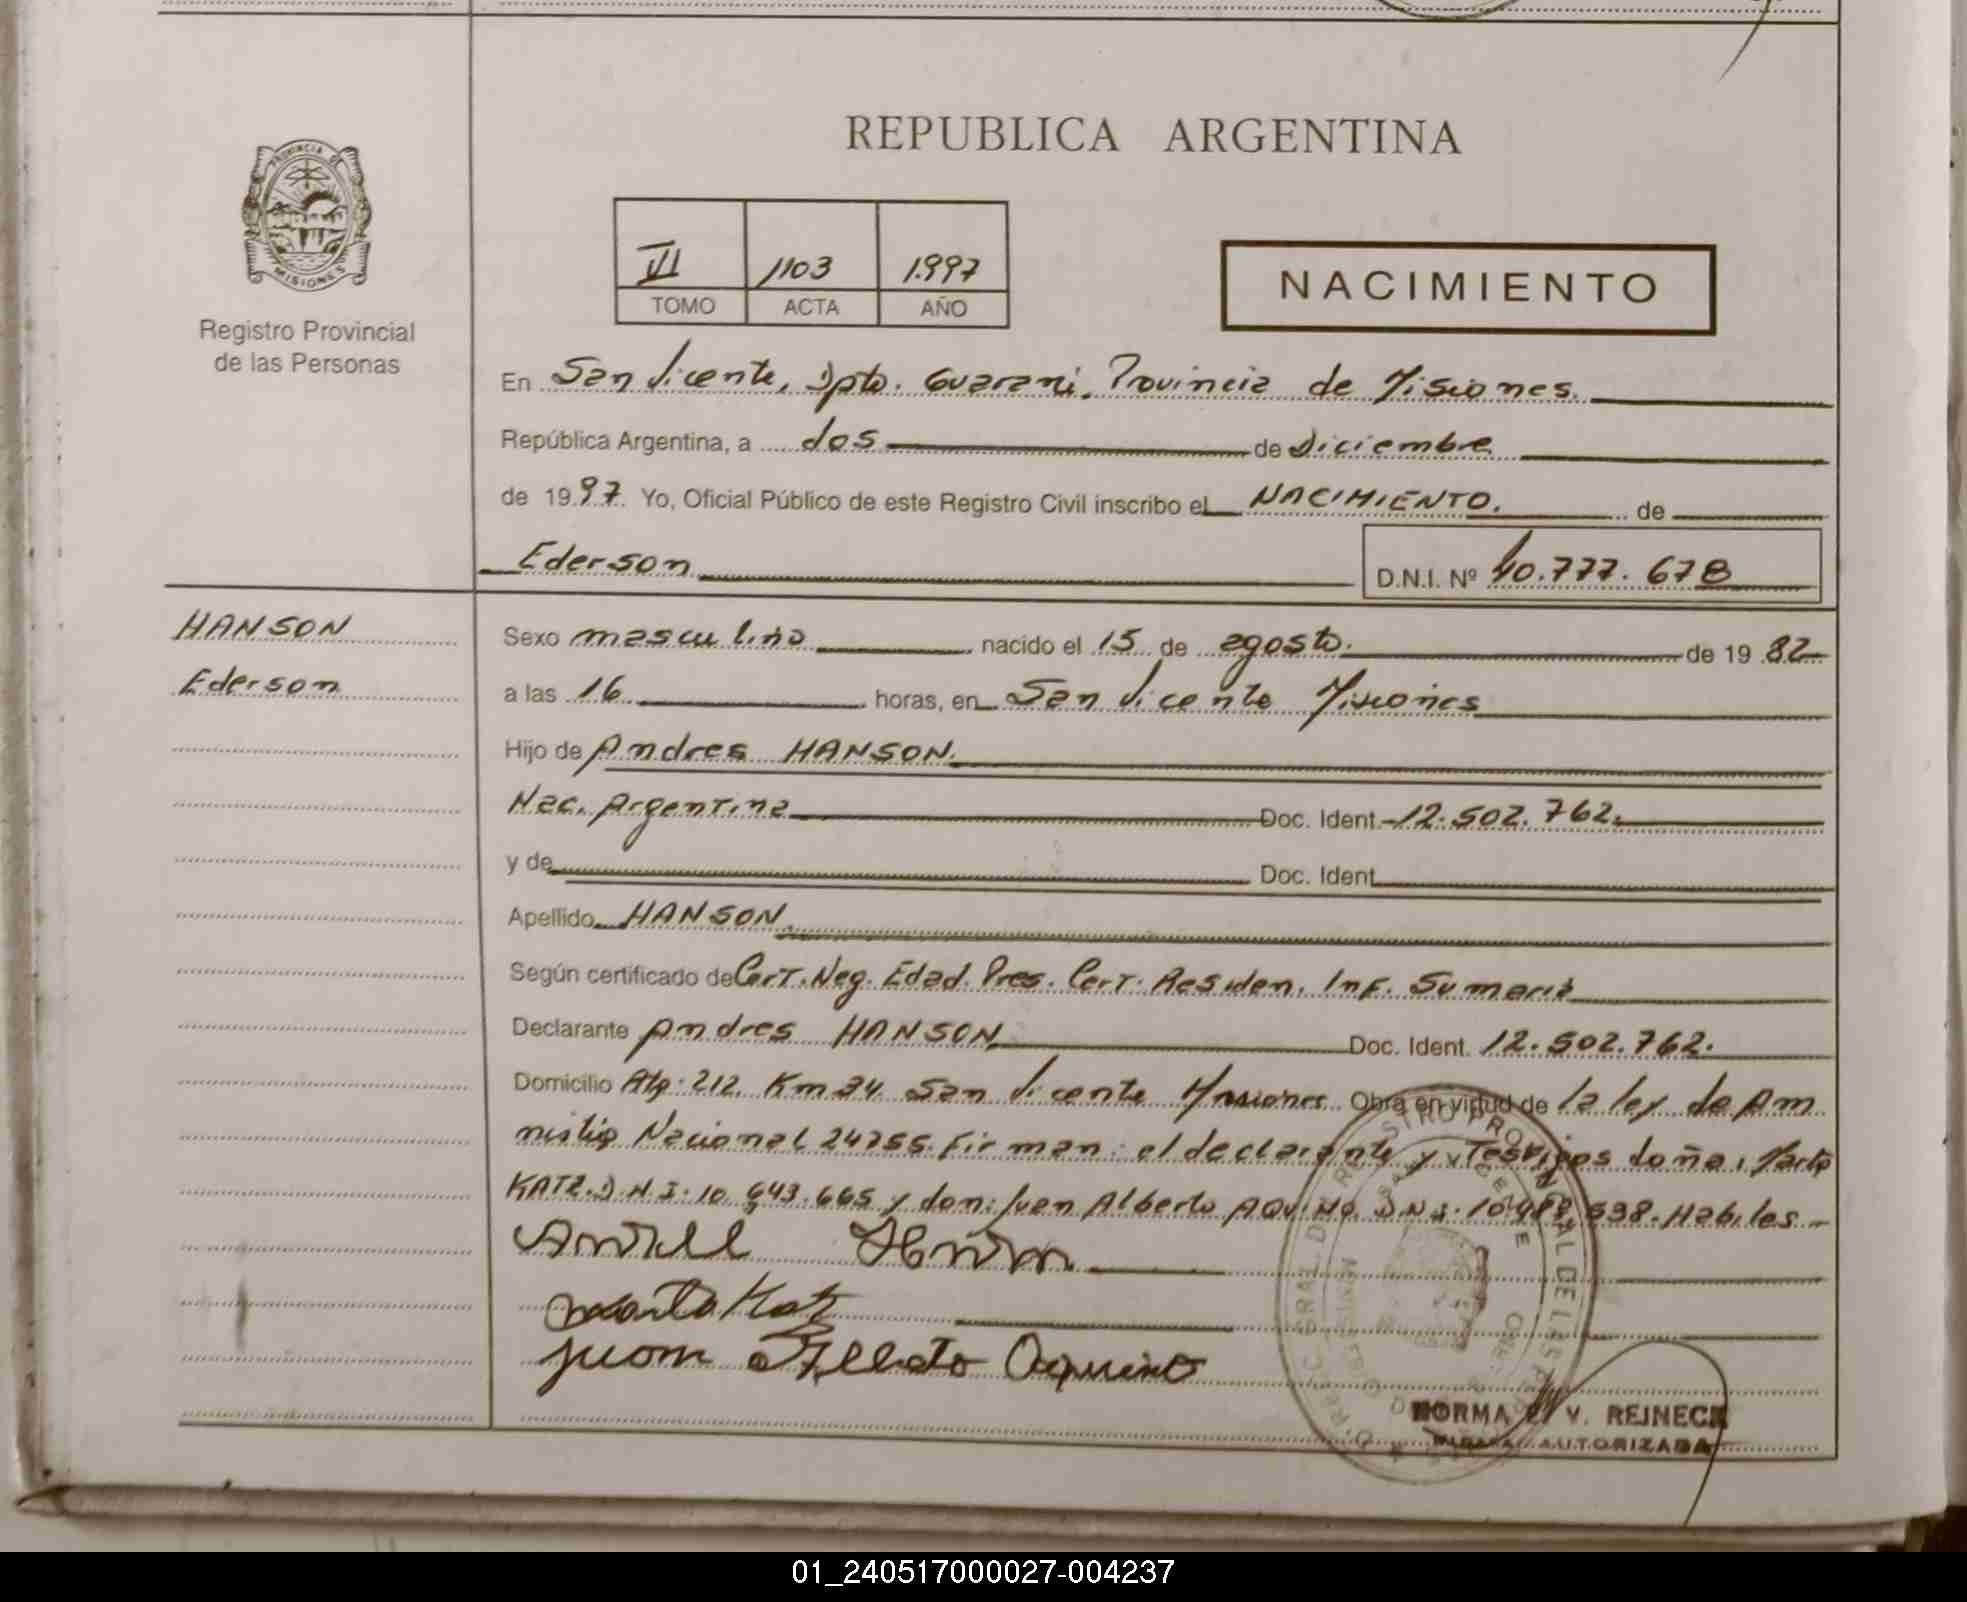 REPUBLICA ARGENTINA
PROVINCIA DE
MISIONES
Registro Provincial
de las Personas
VI 1103 1.997
TOMO ACTA AÑO
NACIMIENTO
En San Vicente, Dpto. Guarani, Provincia de Misiones.
República Argentina, a dos de Diciembre
de 1997. Yo, Oficial Público de este Registro Civil inscribo el NACIMIENTO. de
Ederson D.N.I. Nº 40.777.678
HANSON
Ederson
Sexo masculino nacido el 15 de agosto. de 1982
a las 16 horas, en San Vicente Misiones
Hijo de Andres HANSON.
Nac. Argentina Doc. Ident. 12.502.762.
y de Doc. Ident.
Apellido HANSON
Según certificado de Cert. Neg. Edad. Pres. Cert. Residen. Inf. Sumaria
Declarante Andres HANSON Doc. Ident. 12.502.762.
Domicilio 212. Km 34 San Vicente Misiones Obra en virtud de la ley de Am
nistia Nacional 24755. Firman: el declarante y Testigos doña: Marta
KATZ. D.N.I. 10.643.665 y don: Juan Alberto AQUINO. D.N.I. 10.488.538. Habiles
Marta Katz
Juan Alberto Aquino
NORMA V. REINECK
FIRMA AUTORIZADA
01_240517000027-004237